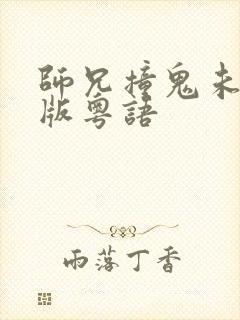 師兄撞鬼未
版粵語
雨落丁香